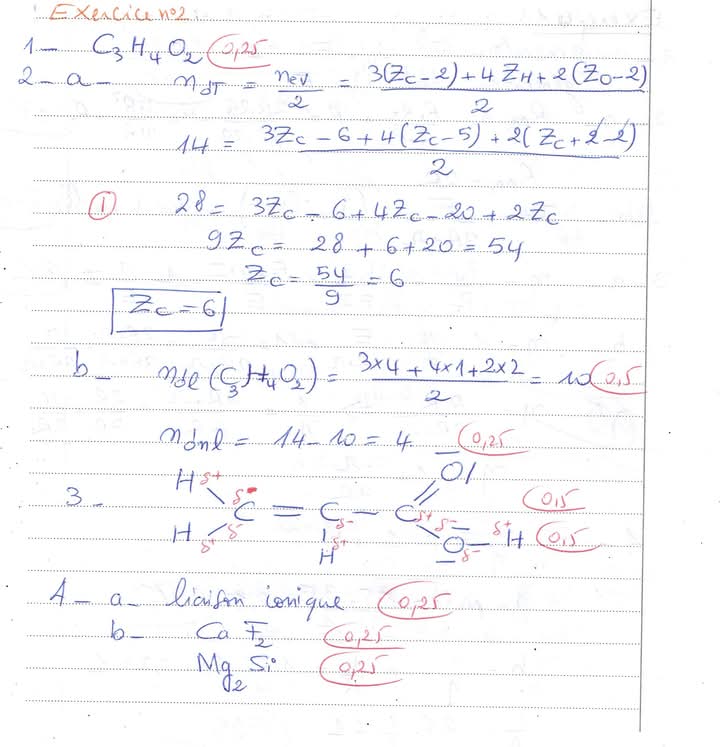 Exercice n°2
1- C₃H₄O₂ 0,25
2-a- ndT = nev/2 = (3(Zc-2)+4ZH+2(Zo-2))/2
14 = (3Zc-6+4(Zc-5)+2(Zc+2-2))/2
① 28 = 3Zc-6+4Zc-20+2Zc
9Zc = 28+6+20 = 54
Zc = 54/9 = 6
Zc = 6
b- ndl(C₃H₄O₂) = (3×4+4×1+2×2)/2 = 10 0,5
ndnl = 14-10 = 4 0,25
H δ+ δ- O
3- C = C δ- - C δ+ δ- 0,5
H δ+ δ- H δ+ O δ- δ+ H 0,5
4- a- liaison ionique 0,25
b- CaF₂ 0,25
Mg₂Si 0,25